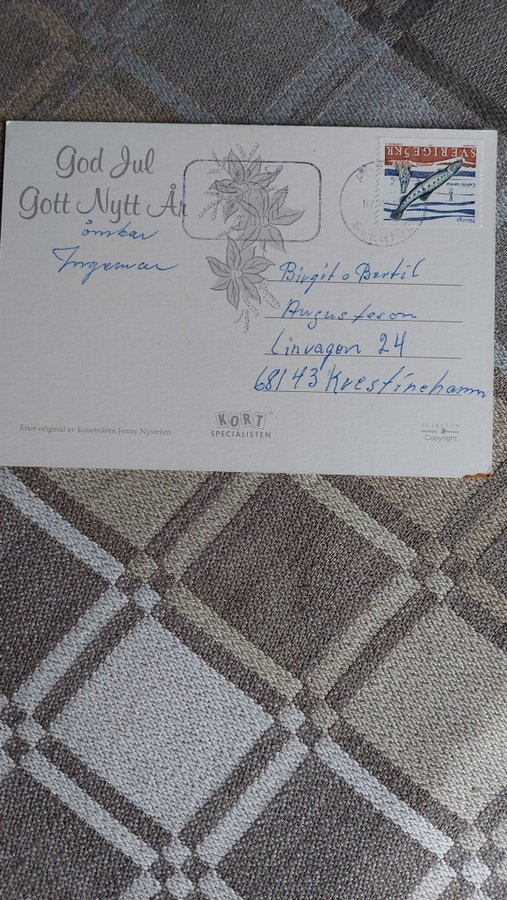 God Jul
Gott Nytt År
önskar
Ingemar
SVERIGE 5KR
Birgit o Bertil
Augustsson
Linvägen 24
68143 Kristinehamn
Efter original av konstnären Jenny Nyström
KORT
SPECIALISTEN
ELIASSON
Copyright